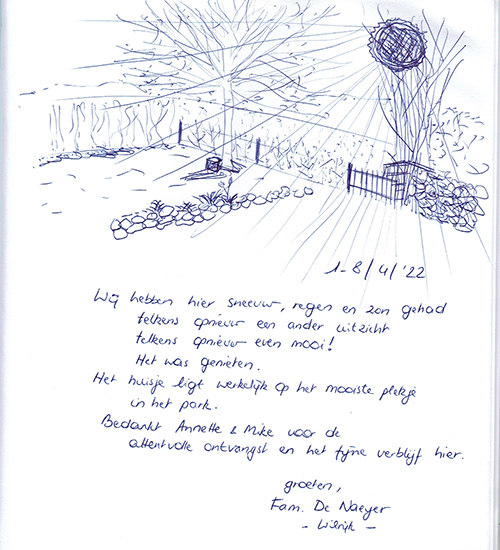 1-8/4/'22
Wij hebben hier sneeuw, regen en zon gehad
telkens opnieuw een ander uitzicht
telkens opnieuw even mooi!
Het was genieten.
Het huisje ligt werkelijk op het mooiste plekje
in het park.
Bedankt Annette & Mike voor de
attentvolle ontvangst en het fijne verblijf hier.
groeten,
Fam. De Naeyer
- Wilrijk -